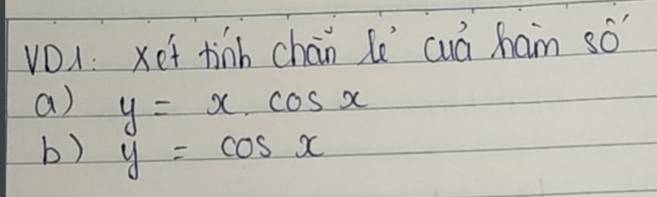 VD1: xét tính chẵn lẻ của hàm số
a) y = x. cos x
b) y = cos x